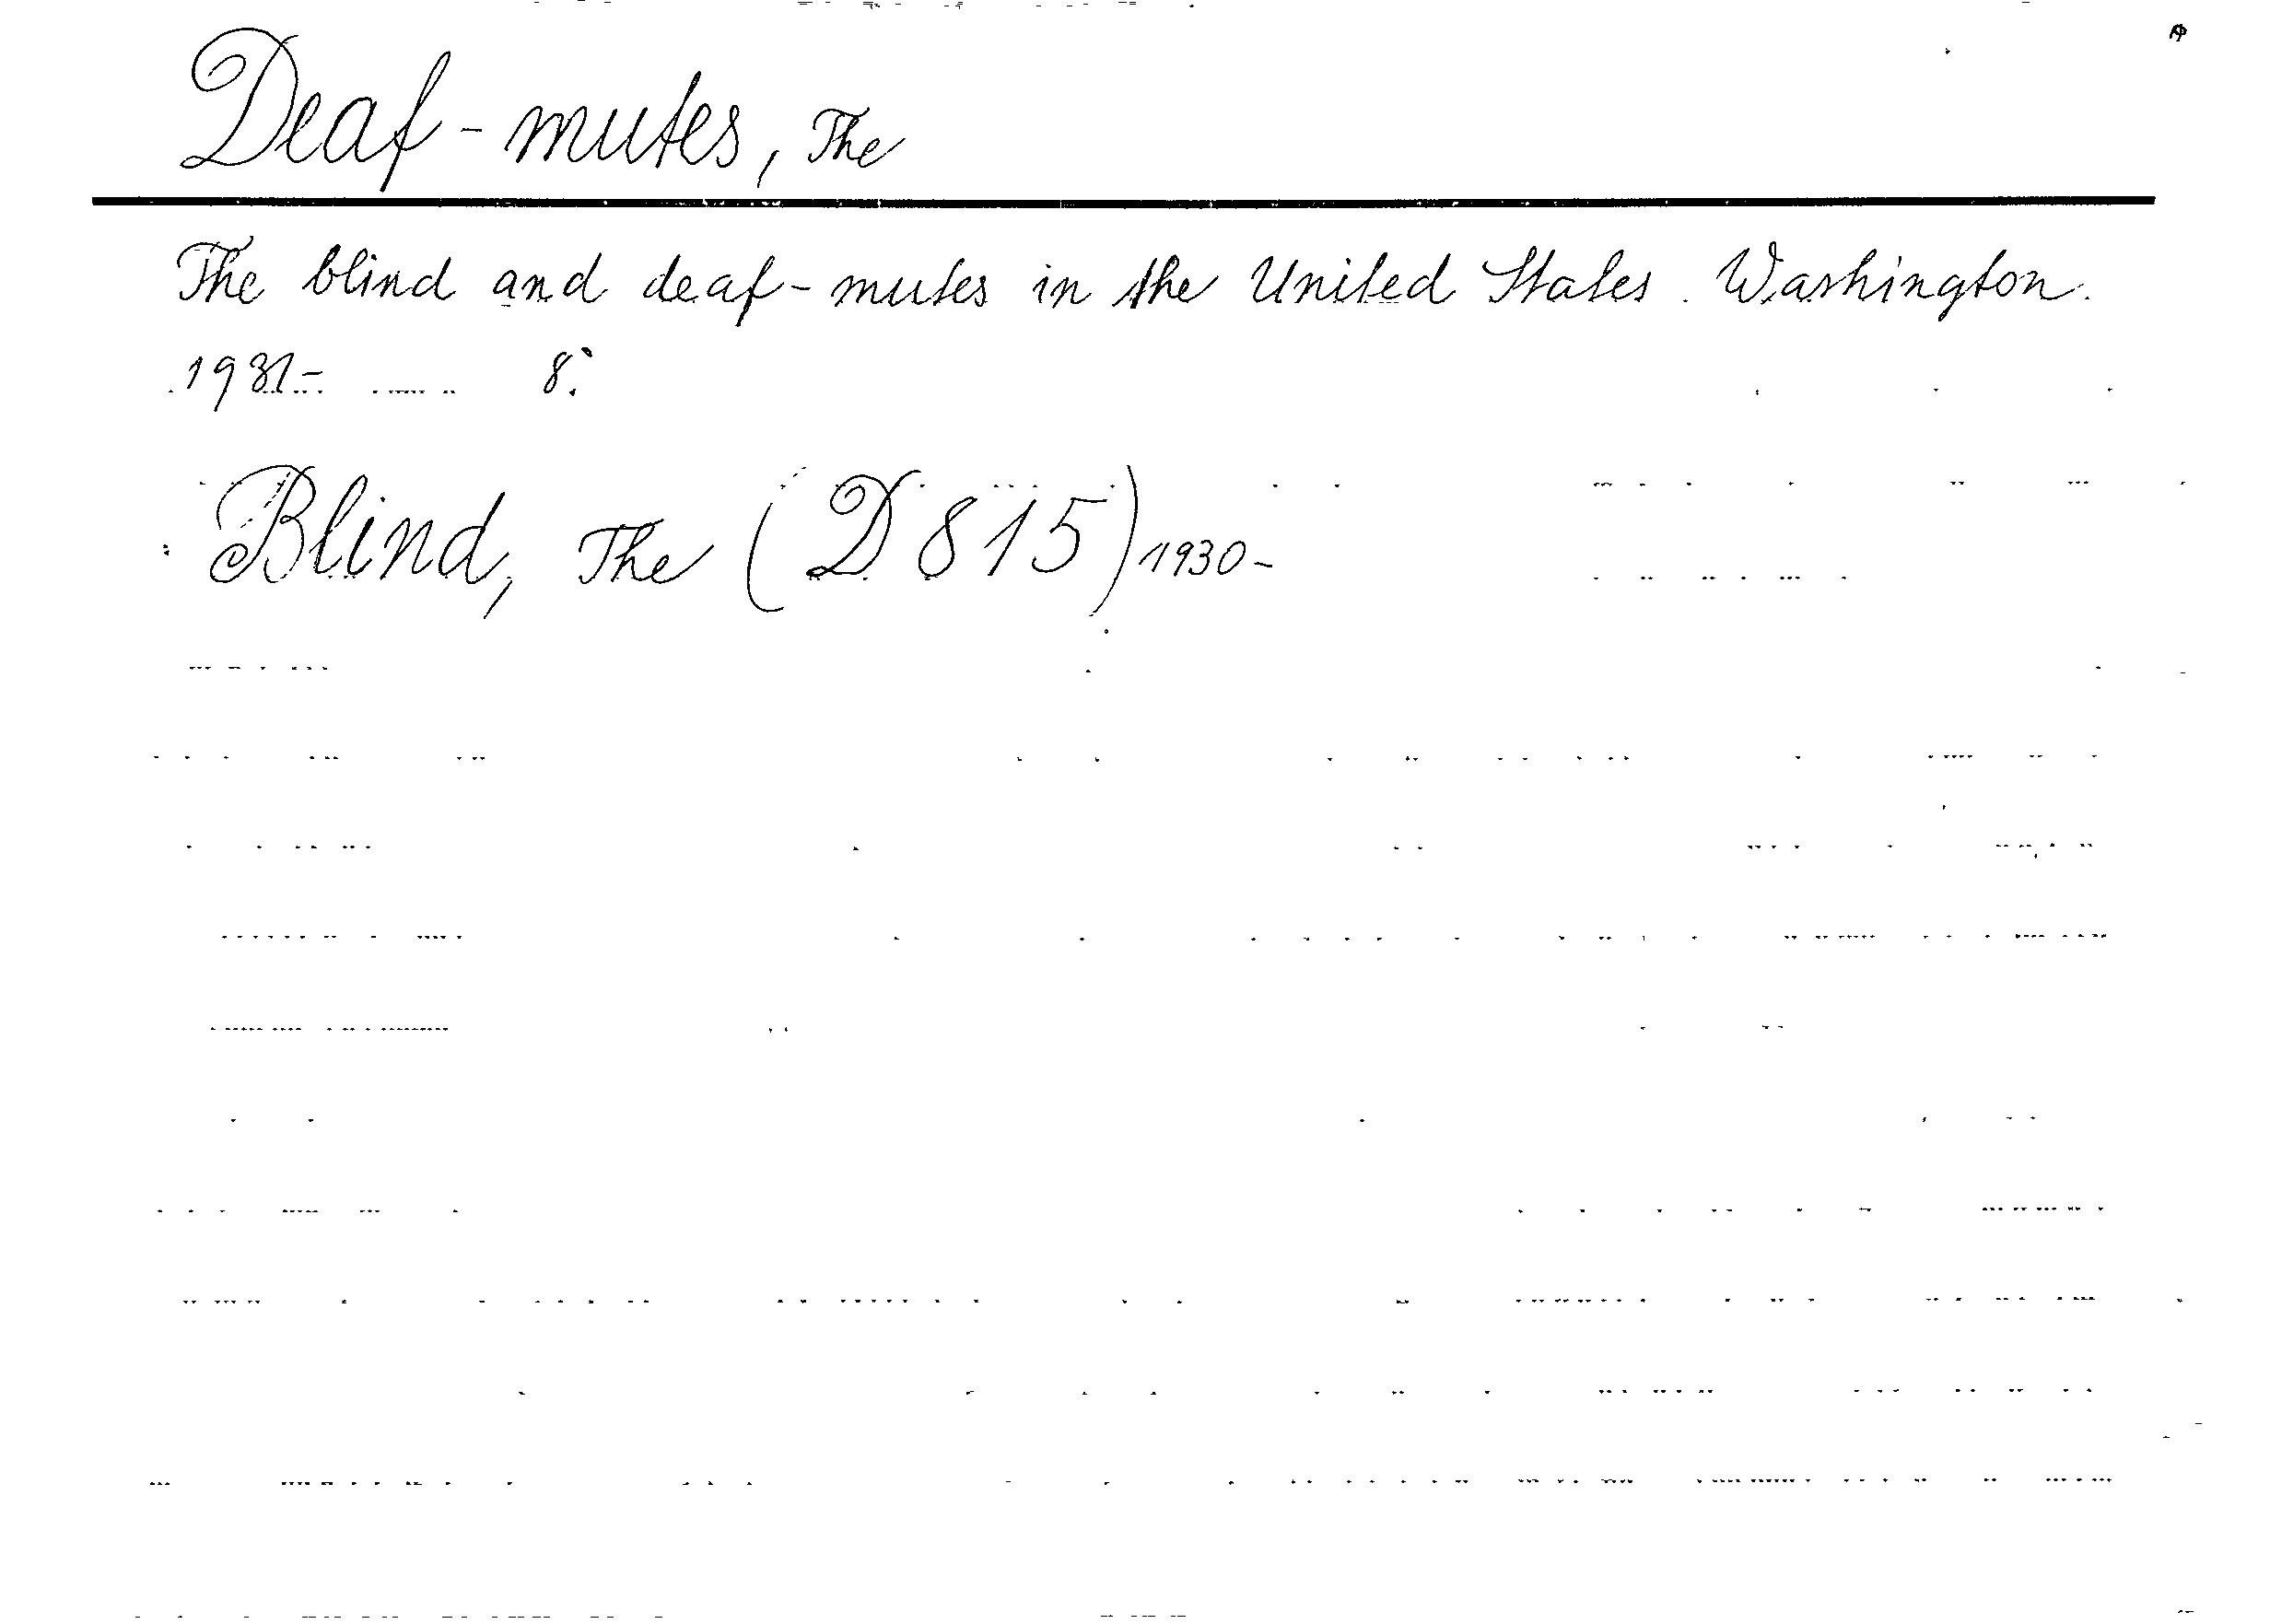 Deaf-mutes, The
The blind and deaf-mutes in the United States. Washington.
1931- 8°.
Blind, The (D 815) 1930-